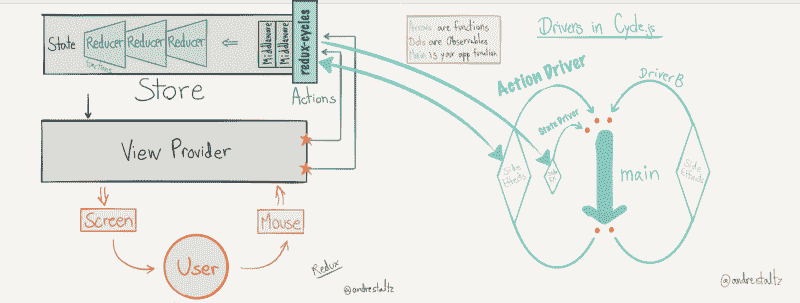 State
Reducer
Reducer
Reducer
functions
Middleware
Middleware
redux-cycles
Store
Actions
View Provider
Screen
Mouse
User
Redux
@andrestaltz
Arrows are functions
Dots are Observables
Main is your app function
Drivers in Cycle.js
Action Driver
State Driver
Driver B
Side
Effects
main
Side
Effects
@andrestaltz